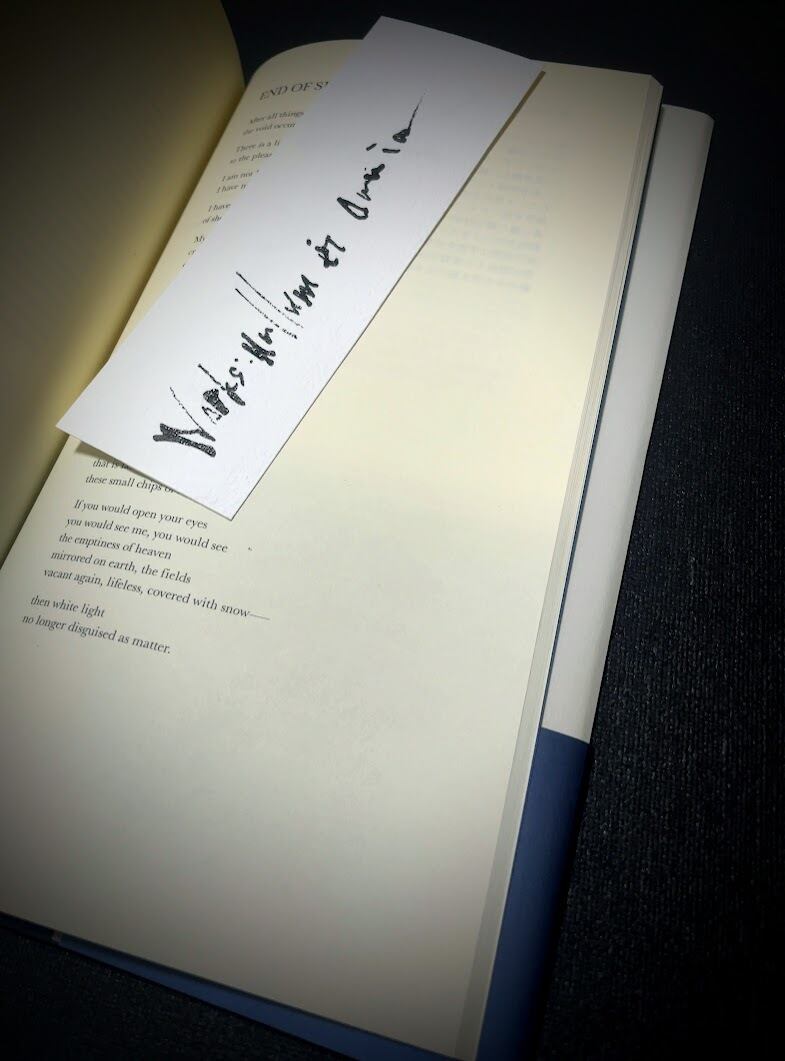 END OF
After all things
the void occur
There is a li
to the pleas
I am not
I have n
I have
of sh
My
that is
these small chips of
If you would open your eyes
you would see me, you would see
the emptiness of heaven
mirrored on earth, the fields
vacant again, lifeless, covered with snow—
then white light
no longer disguised as matter.